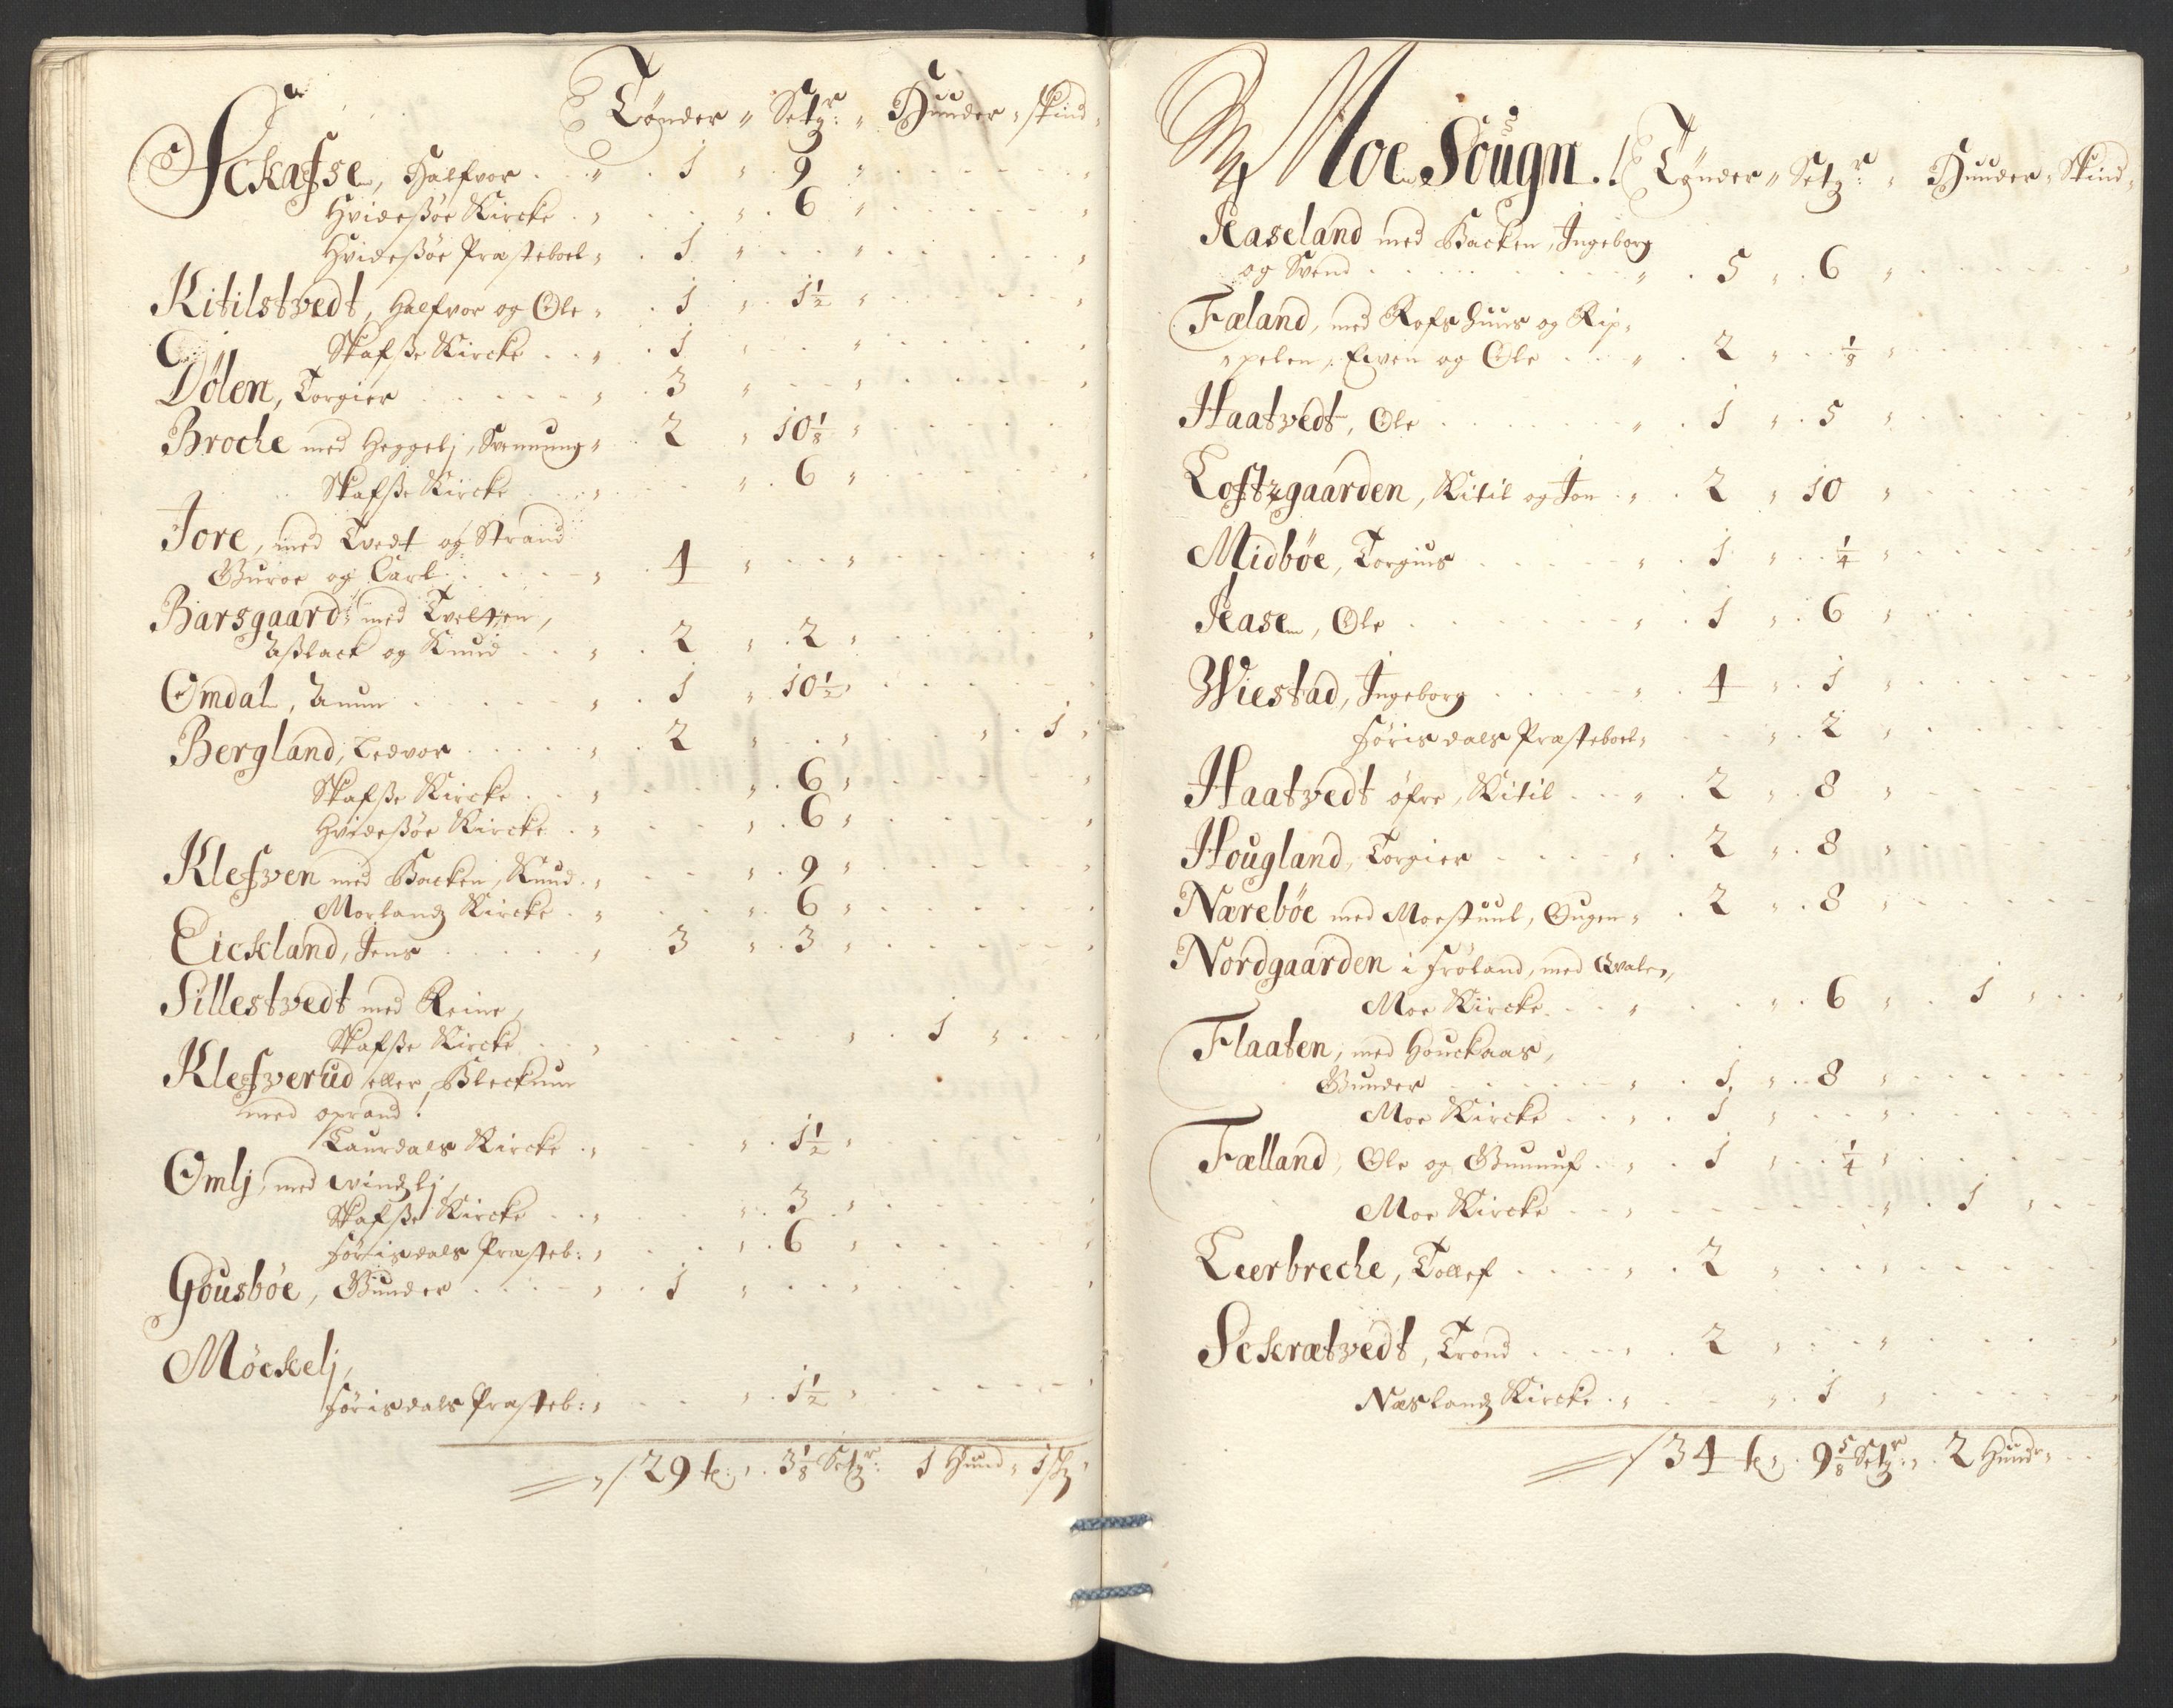 Tønder " Setzr: " Huuder " Skind "
Schafse, Halfvor . . " . 1 " 9 "
Hvidesøe Kircke . " . . . " . 6 "
Hvidesøe Præsteboel " . 1 "
Kitilstvedt, Halfvor og Ole " . 1 " . 1½ "
Skafsse Kircke . . " . 1 "
Dølen, Torgier . . . . " . 3 "
Broche med Heggelj, Svennung " . 2 " 10⅛ "
Skafsse Kircke . . " . . . " . 6 "
Jore, med Tvedt og Strand
Guroe og Carl . . . . " . 4 "
Barsgaard: med Tvelten,
Asslack og Knud . . " . 2 " . 2 "
Omdal, Anun . . . . " . 1 " . 10½ "
Bergland, Ledvor . . . . " . 2 " . . " . . . " . 1 "
Skafsse Kircke . . " . . . " . 6 "
Hvidesøe Kircke . " . . . " . 6 "
Klefven med Backen, Knud . " . . . " . 9 "
Morlandz Kircke . " . . . " . 6 "
Eickland, Jens . . . . " . 3 " . 3 "
Sillestvedt med Reine,
Skafsse Kircke . . " . . . . . . " . 1 "
Klefverud eller Bleckum
med oprand.
Laurdals Kircke . " . . . " . 1½ "
Omlj, med Vindzlj,
Skafsse Kircke . . " . . . " . 3 "
Førisdals Præsteb: " . . . " . 6 "
Gousbøe, Gunder . . . . " . 1 "
Møckelj,
Førisdals Præsteb: " . . . " . 1½ "
29 t: " . 3⅛ Setzr: 1 Huud " 1 Sk "
Moe Sougn. Tønder " Setzr: " Huuder " Skind "
Raseland med Backen, Ingeborg
og Svend . . . . . " . 5 " . 6 "
Fæland, med Rofs Huus og Rip-
pelen, Even og Ole . . . " . 2 " . . ⅛ "
Haatvedt, Ole . . . . " . 1 " . 5 "
Loftzgaarden, Kitil og Jon . " . 2 " 10 "
Midbøe, Torgius . . . . " . 1 " . . ¼ "
Rase, Ole . . . . " . 1 " . 6 "
Wiestad, Ingeborg . . . . " . 4 " . 1 "
Førisdals Præsteboel " . . . " . 2 "
Haatvedt øfre, Kitil . . " . 2 " . 8 "
Hougland, Torgier . . . . " . 2 " . 8 "
Nærebøe med Moestuul, Ougen " . 2 " . 8 "
Nordgaarden i Frøland, med Qvalen,
Moe Kircke . . " . . . " . 6 " . 1 "
Flaaten, med Houckaas,
Gunder . . . . " . 1 " . . 8 "
Moe Kircke . . " . 1 "
Fælland, Ole og Gunnuf . " . 1 " . . ¼ "
Moe Kircke . . " . . . . . . " . 1 "
Leerbreche, Tollef . . . . " . 2 "
Schrætvedt, Trond . . . . " . 2 "
Næslandz Kircke . " . . . " . 1 "
34 t: " . 9⅝ Setzr: " . 2 Huudr "